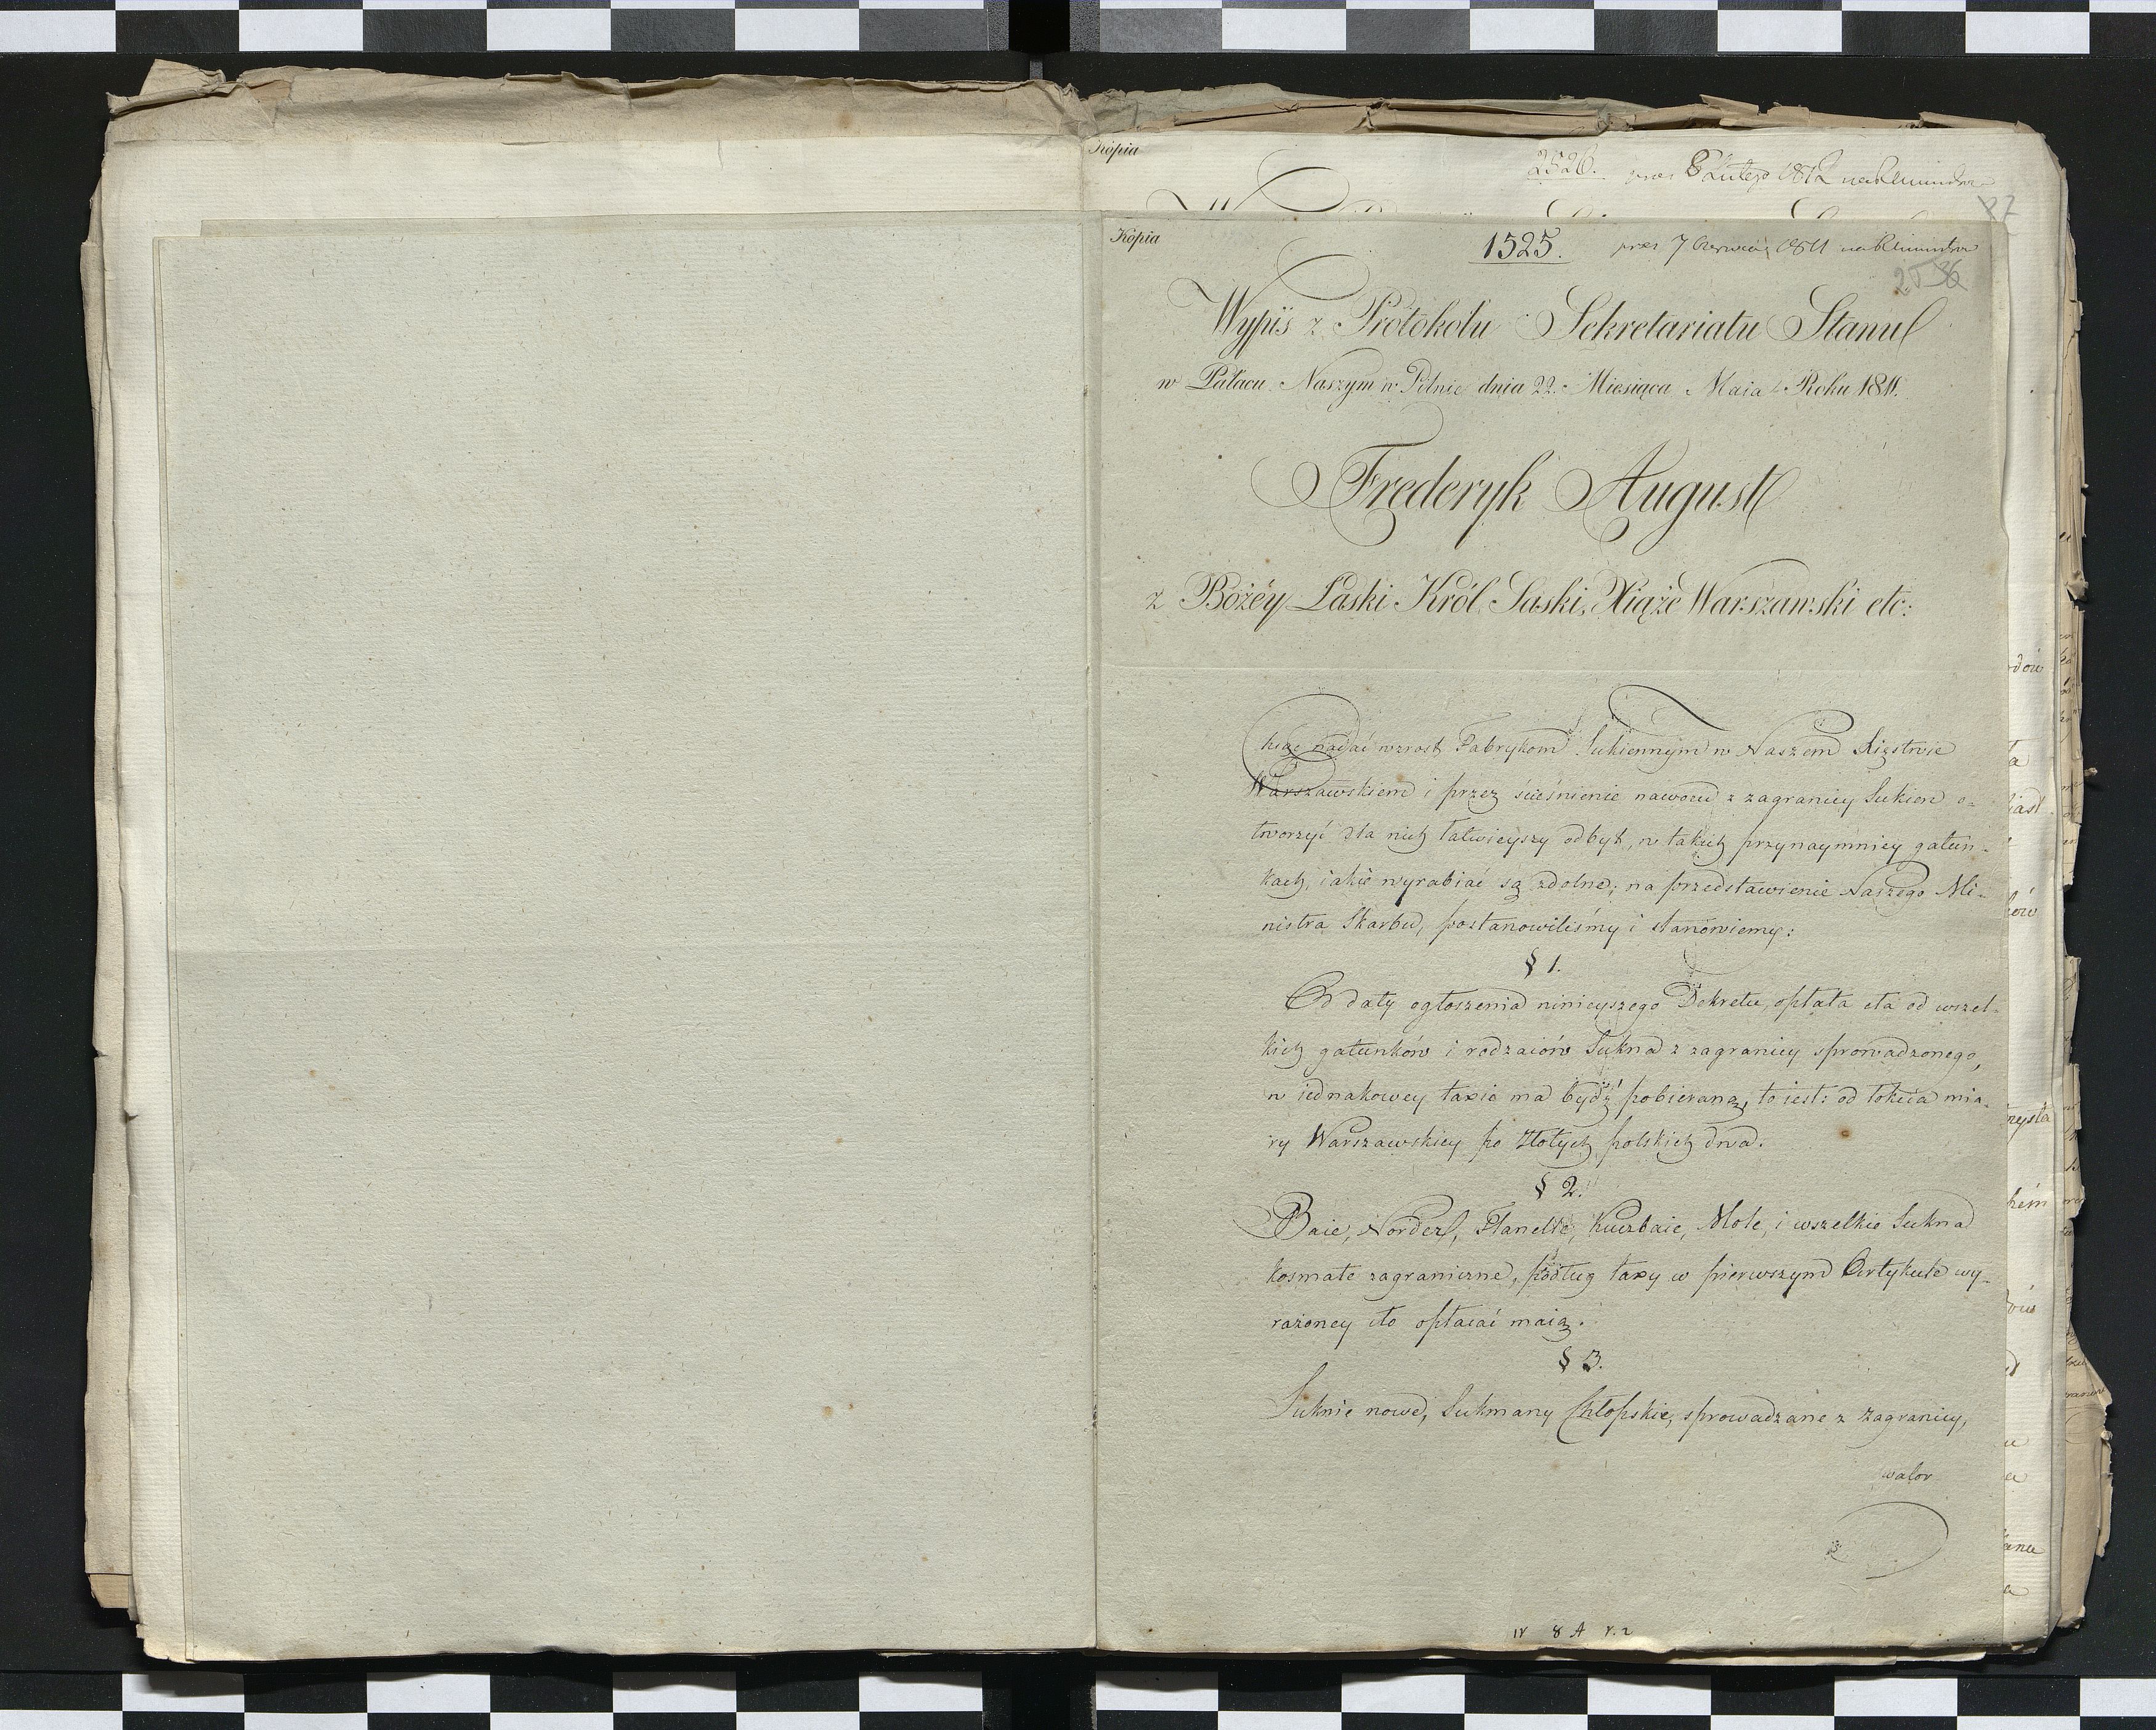 Kopia
2526. prez 8 Lutego 1812
87
Kopia
1525. prez 7 Czerwca 1811
25 36
Wypis z Protokółu Sekretariatu Stanu
w Pałacu Naszym w Pilnie dnia 22. Miesiąca Maia Roku 1811.
Frederyk August
z Bożéy Łaski Król Saski, Xiąże Warszawski etc:
Chcąc nadać wzrost Fabrykom Sukiennym w Naszem Xięstwie
Warszawskiem i przez ścieśnienie nawozu z zagranicy Sukien o-
tworzyć dla nich łatwieyszy odbyt, w takich przynaymniey gatun-
kach, iakie wyrabiać są zdolne; na przedstawienie Naszego Mi-
nistra Skarbu, postanowiliśmy i stanowiemy:
§ 1.
Od daty ogłoszenia ninieyszego Dekretu, opłata cła od wszel-
kich gatunków i rodzaiów Sukna z zagranicy sprowadzonego,
w iednakowey taxie ma bydź pobieraną, to iest: od łokcia mia-
ry Warszawskiey po Złotych polskich dwa.
§ 2.
Baie, Norder, Flanelle, Kuczbaie, Mole, i wszelkie Sukna
kosmate zagraniczne, podług taxy w pierwszym Artykule wy-
rażoney cło opłacać maią.
§ 3.
Suknie nowe, Sukmany Chłopskie, sprowadzane z zagranicy,
walor
IV 8 A v. 2